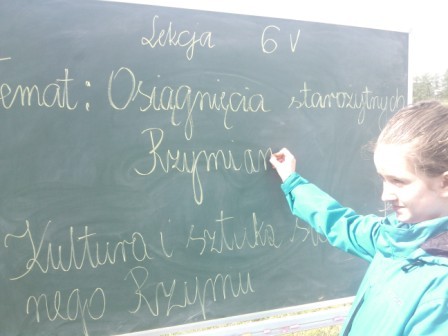 Lekcja 6 V
Temat: Osiągnięcia starożytnych
Rzymian
Kultura i sztuka
nego Rzymu